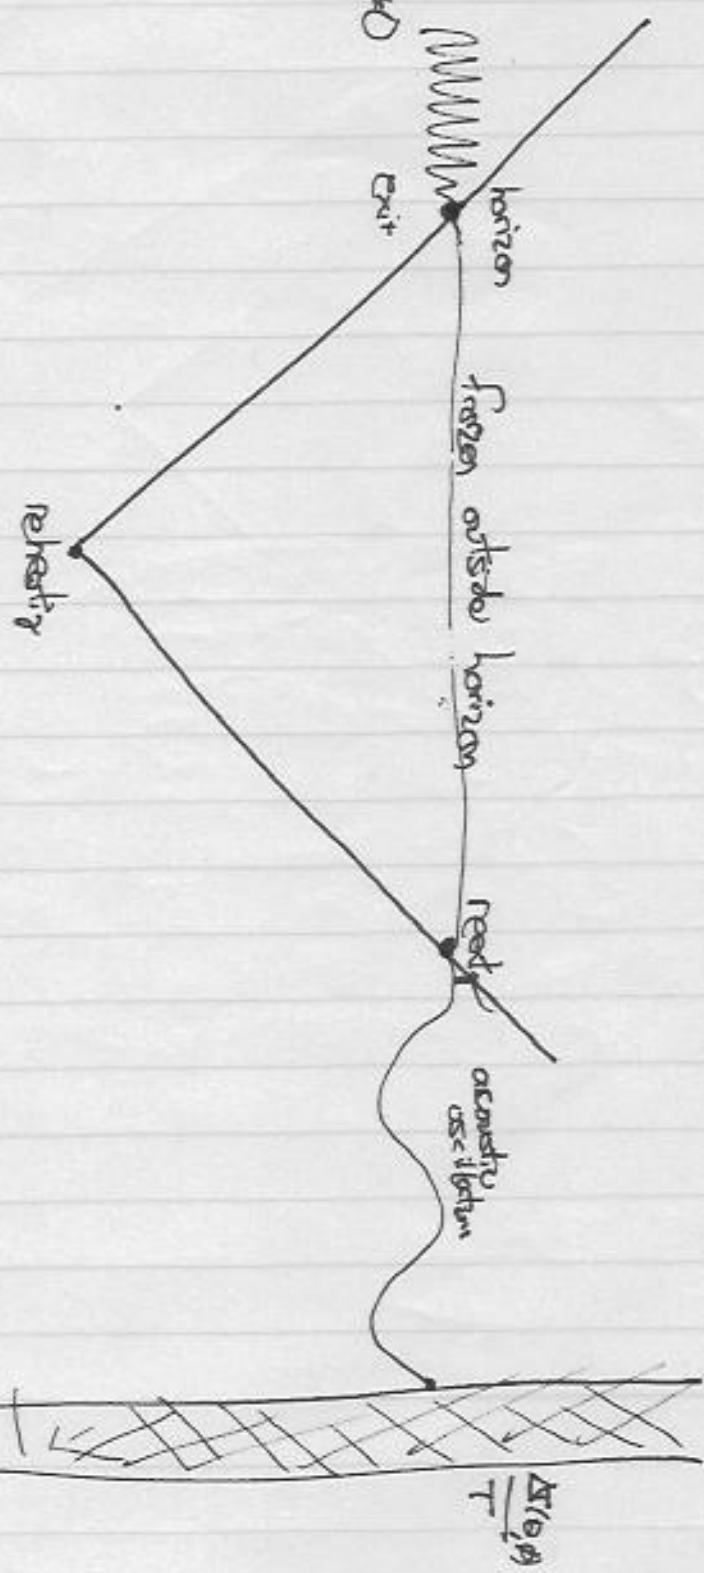 horizon
Exit
frozen outside horizon
reheating
acoustic
oscillation
ΔT(θ,φ)
T